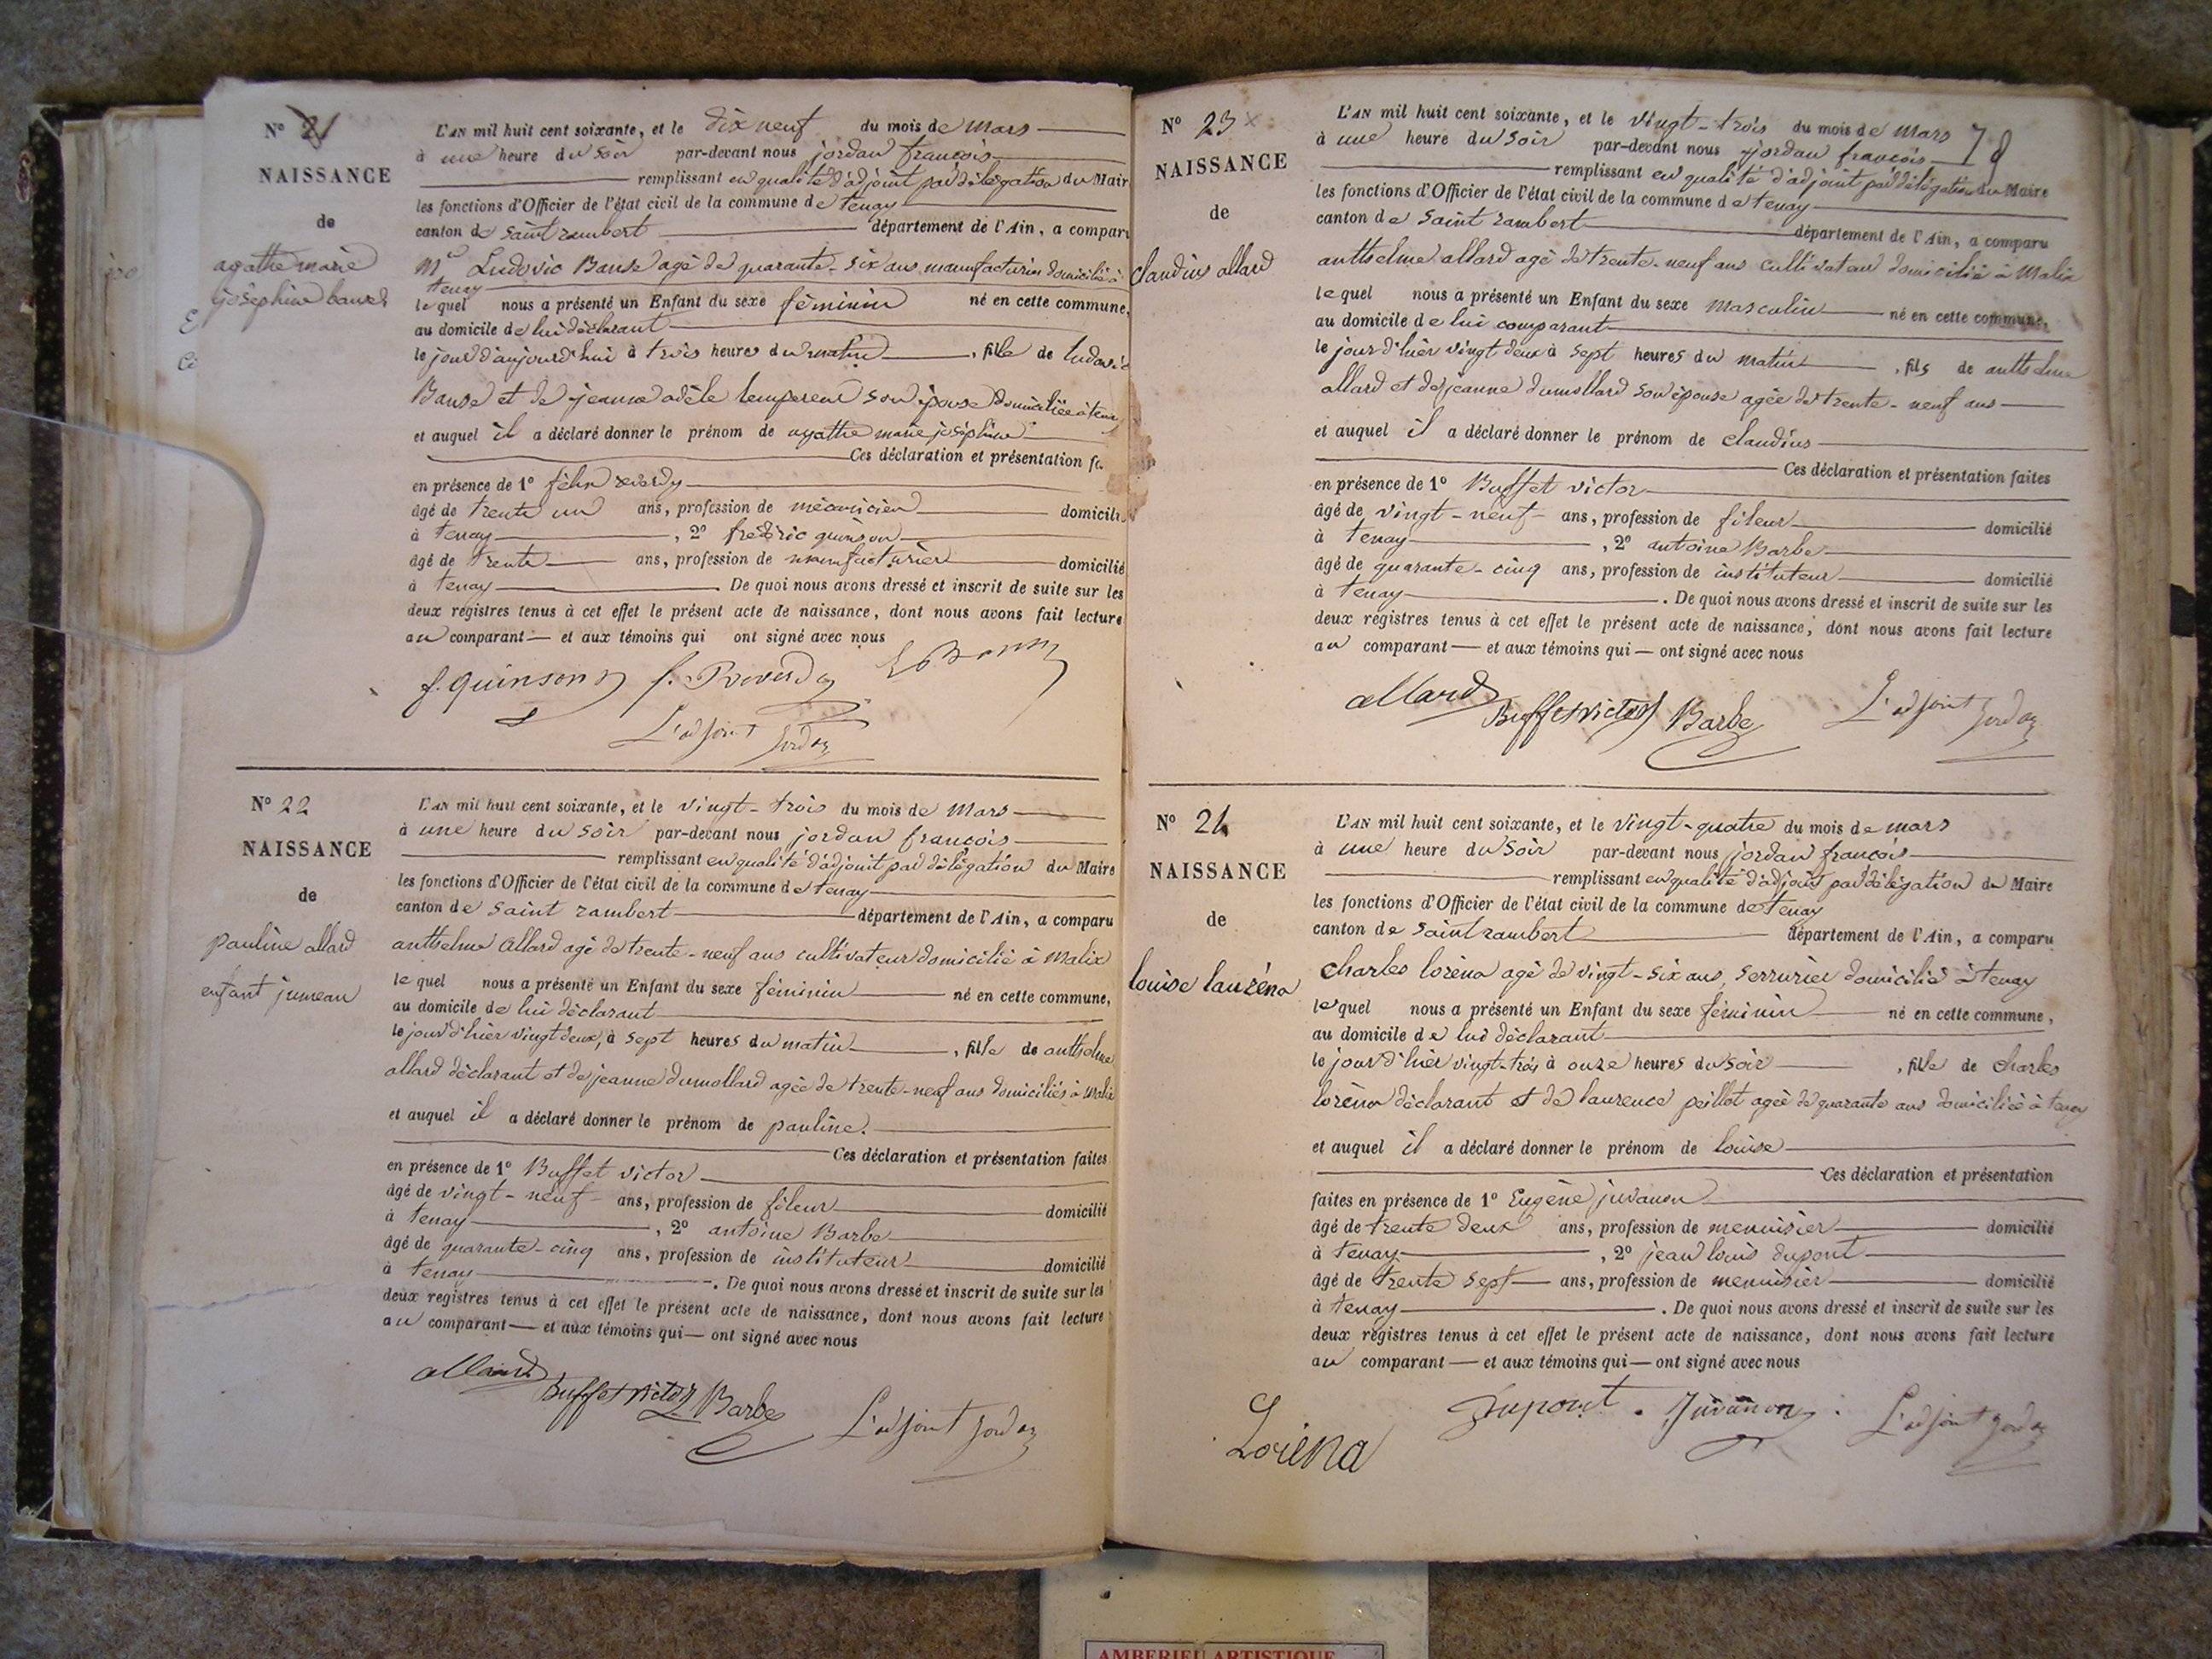 N° 21
NAISSANCE
de
agathe marie
joséphine bause
L'AN mil huit cent soixante, et le dix neuf du mois de Mars
à une heure du soir par-devant nous jordan françois
remplissant en qualité d'adjoint par délégation du Mair
les fonctions d'Officier de l'état civil de la commune de tenay
canton de saint rambert département de l'Ain, a comparu
Mr Ludovic Bause agé de quarante-six ans, manufacturier domicilié à
tenay
lequel nous a présenté un Enfant du sexe féminin né en cette commune,
au domicile de lui déclarant
le jour d'aujourd'hui à trois heures du matin, fille de ludovic
Bause et de jeanne adèle lempereur son épouse domiciliée à tenay
et auquel il a déclaré donner le prénom de agathe marie joséphine
Ces déclaration et présentation fa
en présence de 1° félix reverdy
âgé de trente un ans, profession de mécanicien domicilié
à tenay, 2° frédéric quinson
âgé de trente ans, profession de manufacturier domicilié
à tenay. De quoi nous avons dressé et inscrit de suite sur les
deux registres tenus à cet effet le présent acte de naissance, dont nous avons fait lecture
au comparant et aux témoins qui ont signé avec nous
f. quinson f. Reverdy
L'adjoint Jordan
N° 22
NAISSANCE
de
pauline allard
enfant jumeau
L'AN mil huit cent soixante, et le vingt-trois du mois de Mars
à une heure du soir par-devant nous jordan françois
remplissant en qualité d'adjoint par délégation du Maire
les fonctions d'Officier de l'état civil de la commune de tenay
canton de saint rambert département de l'Ain, a comparu
anthelme allard agé de trente-neuf ans cultivateur domicilié à Malix
lequel nous a présenté un Enfant du sexe féminin né en cette commune,
au domicile de lui déclarant
le jour d'hier vingt deux, à sept heures du matin, fille de anthelme
allard déclarant et de jeanne dumollard agée de trente-neuf ans domiciliés à Malix
et auquel il a déclaré donner le prénom de pauline.
Ces déclaration et présentation faites
en présence de 1° Buffet victor
âgé de vingt-neuf ans, profession de fileur domicilié
à tenay, 2° antoine Barbe
âgé de quarante-cinq ans, profession de instituteur domicilié
à tenay. De quoi nous avons dressé et inscrit de suite sur les
deux registres tenus à cet effet le présent acte de naissance, dont nous avons fait lecture
au comparant et aux témoins qui ont signé avec nous
allard Buffet victor Barbe L'adjoint Jordan
78
N° 23
NAISSANCE
de
claudius allard
L'AN mil huit cent soixante, et le vingt-trois du mois de Mars
à une heure du soir par-devant nous jordan françois
remplissant en qualité d'adjoint par délégation du Maire
les fonctions d'Officier de l'état civil de la commune de tenay
canton de saint rambert département de l'Ain, a comparu
anthelme allard agé de trente-neuf ans cultivateur domicilié à Malix
lequel nous a présenté un Enfant du sexe masculin né en cette commune,
au domicile de lui comparant
le jour d'hier vingt deux à sept heures du matin, fils de anthelme
allard et de jeanne dumollard son épouse agée de trente-neuf ans
et auquel il a déclaré donner le prénom de claudius
Ces déclaration et présentation faites
en présence de 1° Buffet victor
âgé de vingt-neuf ans, profession de fileur domicilié
à tenay, 2° antoine Barbe
âgé de quarante-cinq ans, profession de instituteur domicilié
à tenay. De quoi nous avons dressé et inscrit de suite sur les
deux registres tenus à cet effet le présent acte de naissance, dont nous avons fait lecture
au comparant et aux témoins qui ont signé avec nous
allard Buffet victor Barbe L'adjoint Jordan
N° 24
NAISSANCE
de
louise lauréna
L'AN mil huit cent soixante, et le vingt-quatre du mois de mars
à une heure du soir par-devant nous jordan françois
remplissant en qualité d'adjoint par délégation du Maire
les fonctions d'Officier de l'état civil de la commune de tenay
canton de saint rambert département de l'Ain, a comparu
charles loréna agé de vingt-six ans, serrurier domicilié à tenay
lequel nous a présenté un Enfant du sexe féminin né en cette commune,
au domicile de lui déclarant
le jour d'hier vingt-trois à onze heures du soir, fille de charles
loréna déclarant et de laurence peillot agée de quarante ans domiciliée à tenay
et auquel il a déclaré donner le prénom de louise
Ces déclaration et présentation
faites en présence de 1° Eugène juvanon
âgé de trente deux ans, profession de menuisier domicilié
à tenay, 2° jean louis dupont
âgé de trente sept ans, profession de menuisier domicilié
à tenay. De quoi nous avons dressé et inscrit de suite sur les
deux registres tenus à cet effet le présent acte de naissance, dont nous avons fait lecture
au comparant et aux témoins qui ont signé avec nous
Lorena Dupont. Juvanon. L'adjoint Jordan
AMBERIEU ARTISTIQUE